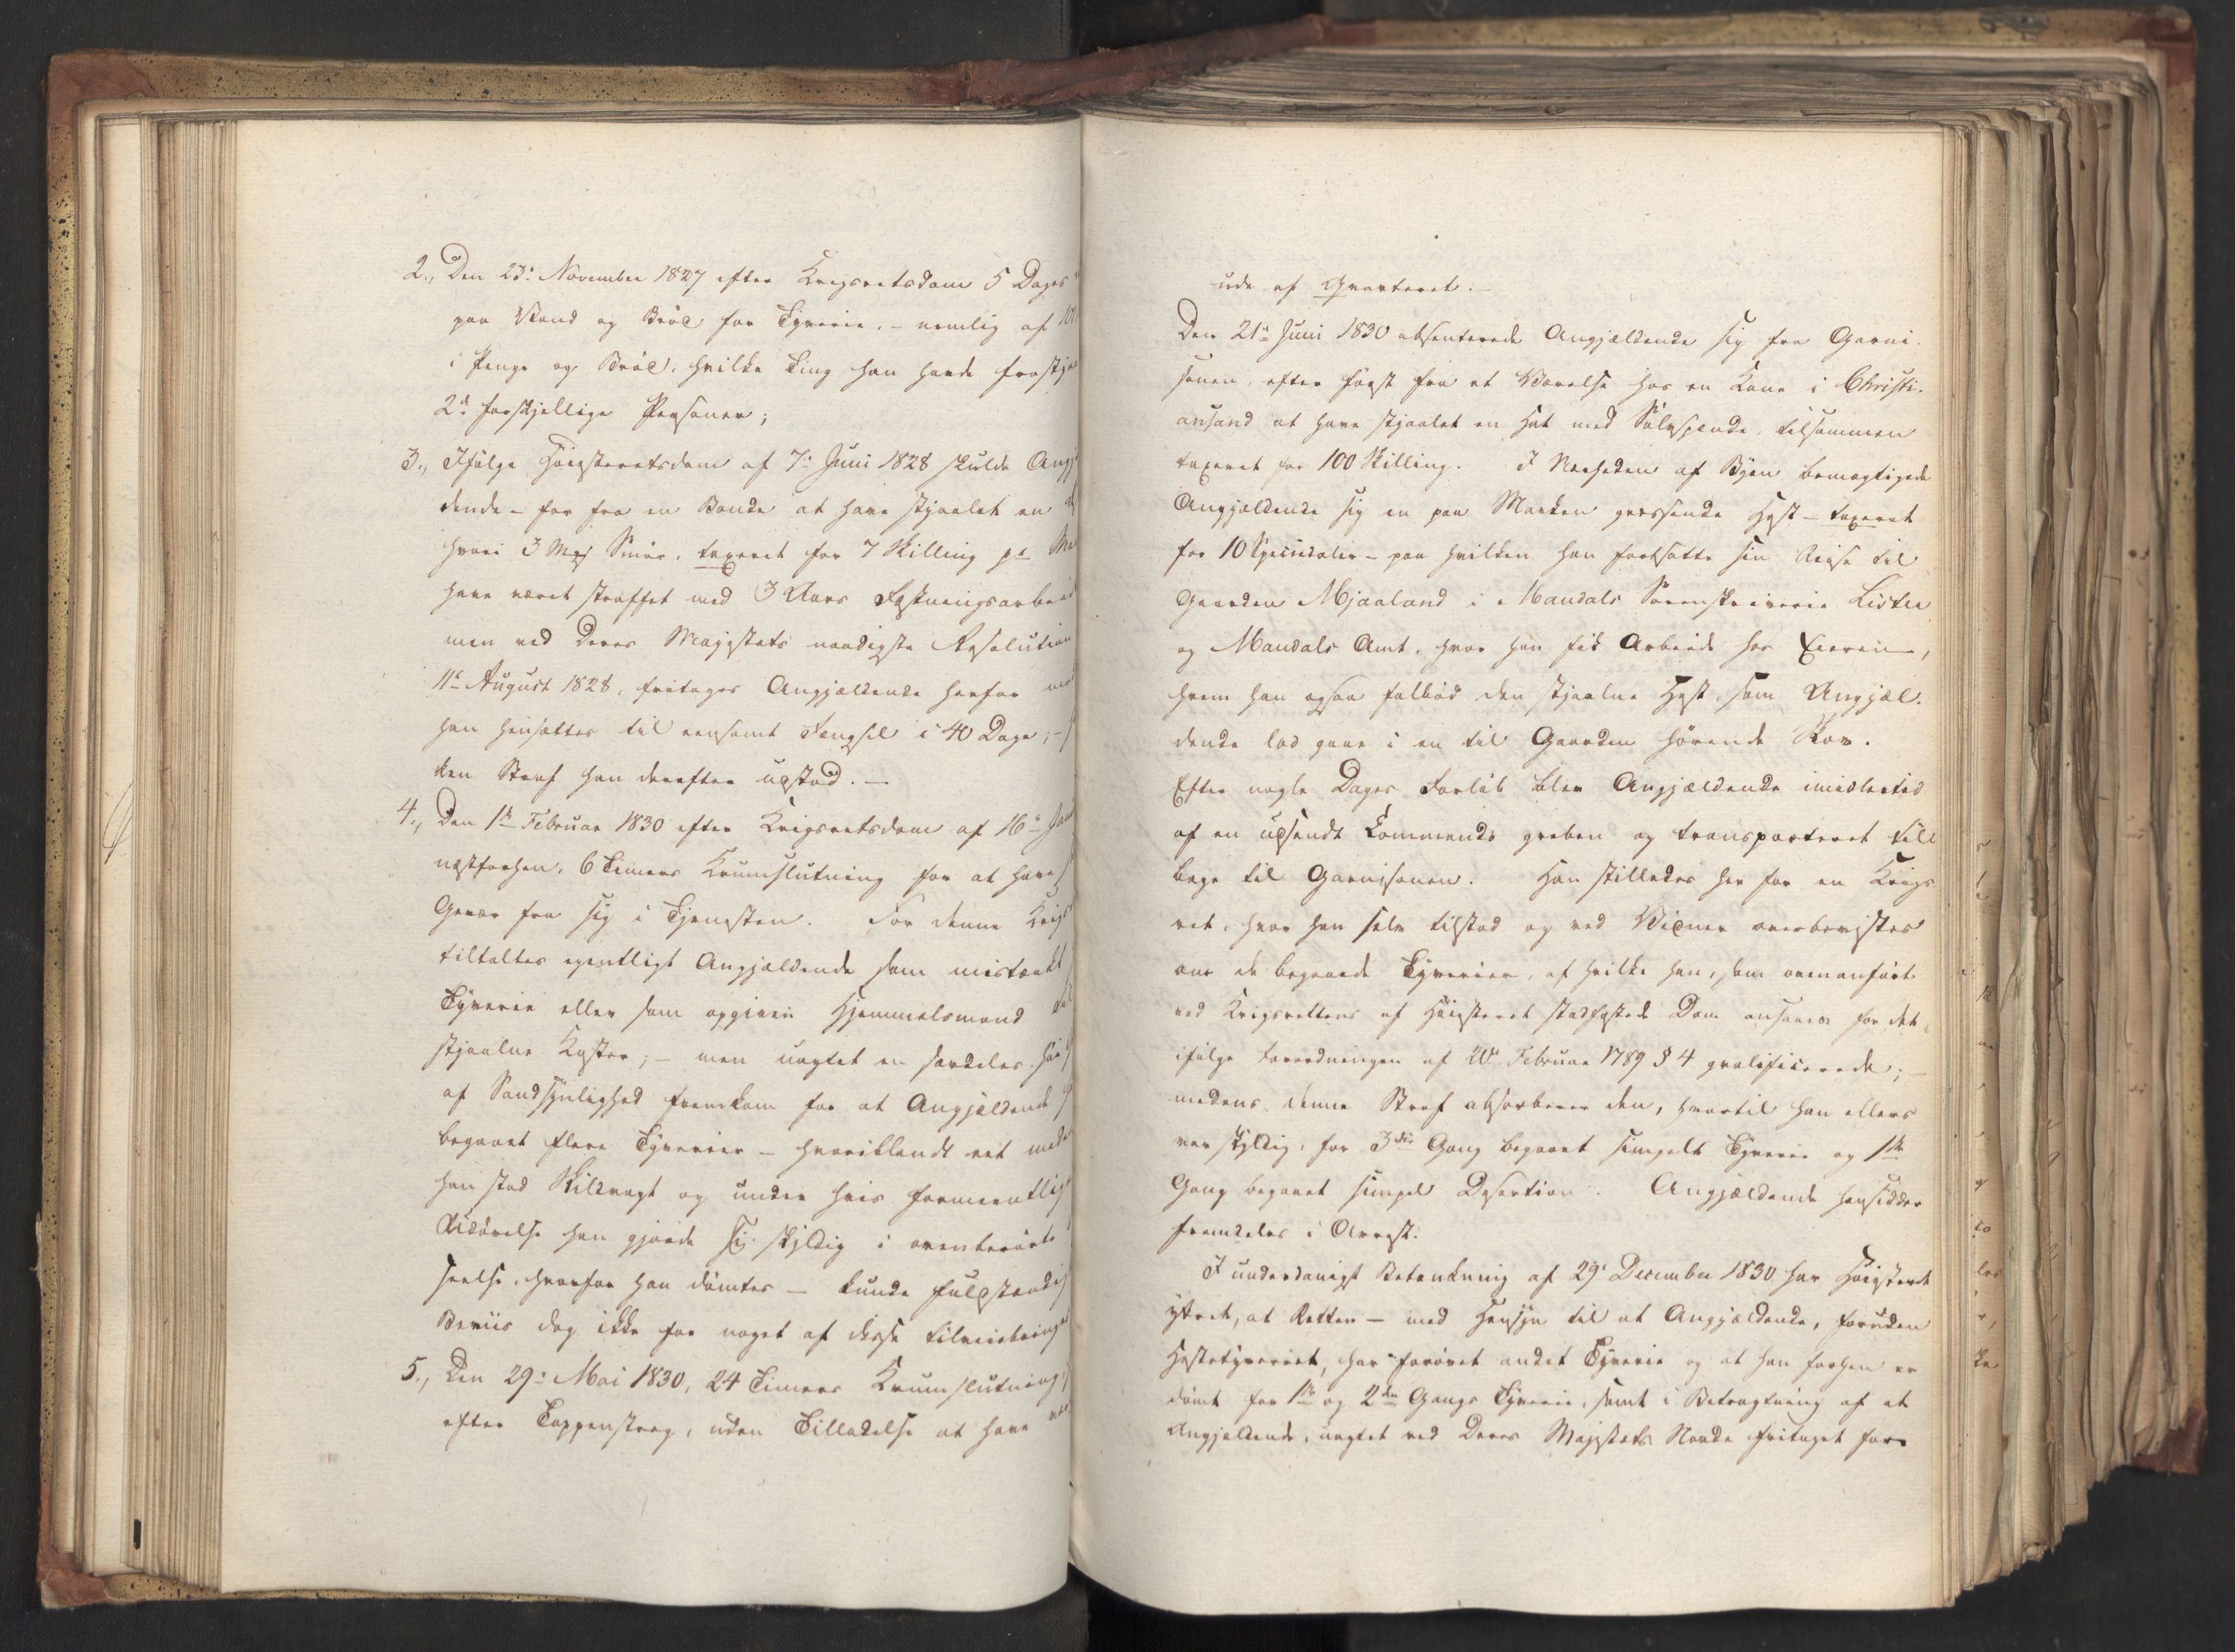 2., Den 23' November 1827 efter Krigsretsdom 5 Dages
paa Vand og Brød for Tyverie, - nemlig af 101
i Penge og Brød, hvilke Ting han havde frastjaa
2de forskjellige Personer;
3., Ifølge Høiesteretsdom af 7' Juni 1828 skulde Angj
dende - for fra en Bonde at have stjaalet en
hvori 3 Mrk Smør, taxeret for 7 Skilling pr Ma
have været straffet med 3 Aars Fæstningsarbeid
men ved Deres Majestæts naadigste Resolution
11te August 1828, fritages Angjældende herfor
han hensattes til eensomt Fængsel i 40 Dage; -
ken Straf han derefter udstod. -
4., Den 1ste Februar 1830 efter Krigsretsdom af 16de Jan
næstforhen, 6 Timers Krumslutning for at have
Gevær fra sig i Tjenesten. For denne Krigs
tiltaltes egentligt Angjældende som mistænkt
Tyverie eller som opgiven Hjemmelsmand
stjaalne Koster; - men uagtet en særdeles høi
af Sandsynlighed fremkom for at Angjældende
begaaet flere Tyverier - hvoriblandt eet med
han stod Skildvagt og under hvis formeentlig
Udøvelse han gjorde sig skyldig i ovenberørte
seelse, hvorfor han dømtes - kunde fuldstændig
Beviis dog ikke for noget af disse tilveiebringes
5., Den 29' Mai 1830, 24 Timers Krumslutning
efter Tappenstreg, uden Tilladelse at have
ude af Qvarteret. -
Den 21de Juni 1830 absenterede Angjældende sig fra Garni-
sonen, efter først fra et Værelse hos en Kone i Christi-
ansand at have stjaalet en Hat med Sølvspænde, tilsammen
taxeret for 100 Skilling. I Nærheden af Byen bemægtigede
Angjældende sig en paa Marken græssende Hest - taxeret
for 10 Speciedaler - paa hvilken han fortsatte sin Reise til
Gaarden Mjaaland i Mandals Sorenskriverie Lister
og Mandals Amt, hvor han fik Arbeide hos Eieren,
hvem han ogsaa falbød den stjaalne Hest, som Angjæl-
dende lod gaae i en til Gaarden hørende Skov.
Efter nogle Dages Forløb blev Angjældende imidlertid
af en udsendt Commando greben og transporteret til
bage til Garnisonen. Han stilledes her for en Krigs
ret, hvor han selv tilstod og ved Vidner overbevistes
om de begaaede Tyverier, af hvilke han, som ovenanført
ved Krigsrettens af Høiesteret stadfæstede Dom ansaaes for det
ifølge Forordningen af 20de Februar 1789 § 4 qvalificerede; -
medens denne Straf absorberer den, hvortil han ellers
var skyldig, for 3die Gang begaaet simpelt Tyverie og 1ste
Gang begaaet simpel Desertion. Angjældende hensidder
fremdeles i Arrest.
I underdanigst Betænkning af 29' December 1830 har Høiesteret
yttret, at Retten - med Hensyn til at Angjældende, foruden
Hestetyveriet, har forøvet andet Tyverie og at han forhen er
dømt for 1ste og 2den Gangs Tyverie, samt i Betragtning af at
Angjældende, uagtet ved Deres Majestæts Naade fritaget for